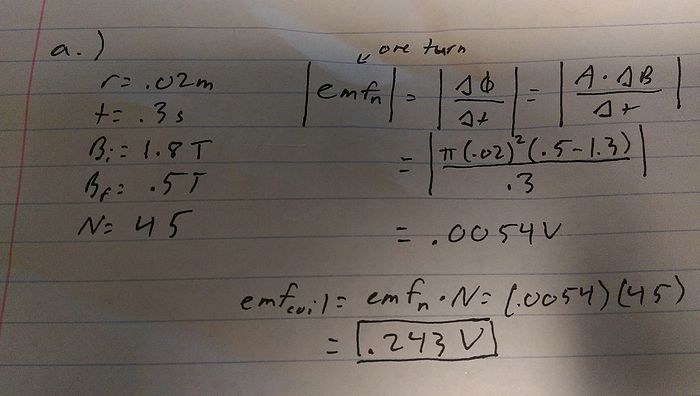 a.)
r = .02m
t = .3s
Bi = 1.8 T
Bf = .5T
N = 45
one turn
|emfn| = |ΔΦ/Δt| = |A · ΔB/Δt|
= |π(.02)²(.5-1.3)/.3|
= .0054V
emfcoil = emfn · N = (.0054)(45)
= .243 V